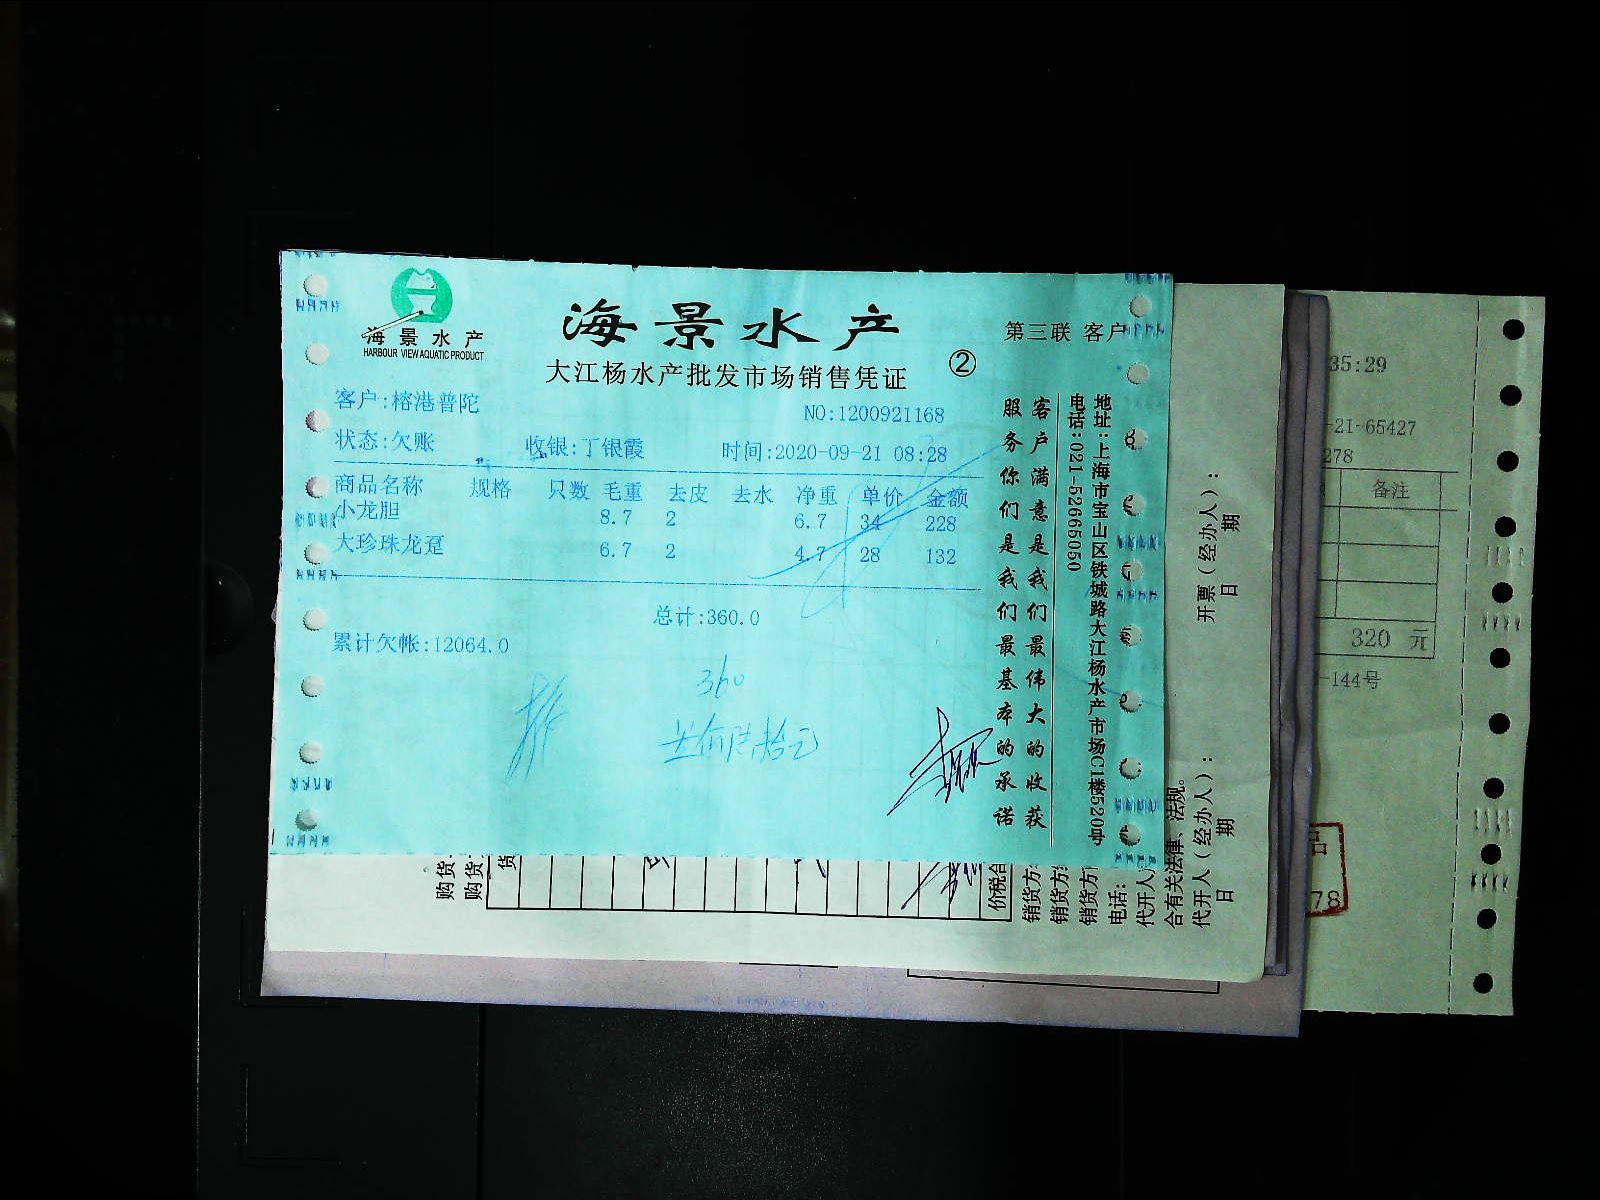 海景水产
HARBOUR VIEW AQUATIC PRODUCT
海景水产
第三联 客户
大江杨水产批发市场销售凭证
②
客户:榕港普陀
NO:1200921168
状态:欠账 收银:丁银霞 时间:2020-09-21 08:28
商品名称 规格 只数 毛重 去皮 去水 净重 单价 金额
小龙胆 8.7 2 6.7 34 228
大珍珠龙趸 6.7 2 4.7 28 132
总计:360.0
累计欠帐:12064.0
360
叁佰陆拾元
客户满意是我们最伟大的收获
服务你们是我们最基本的承诺
地址:上海市宝山区铁城路大江杨水产市场C1楼520号
电话:021-52665050
购货
购货
货
价税合
销货方
销货方
销货方
电话:
代开人
合有关法律、法规。
代开人(经办人):
日 期
开票(经办人):
日 期
35:29
-21-65427
278
备注
320 元
-144号
78